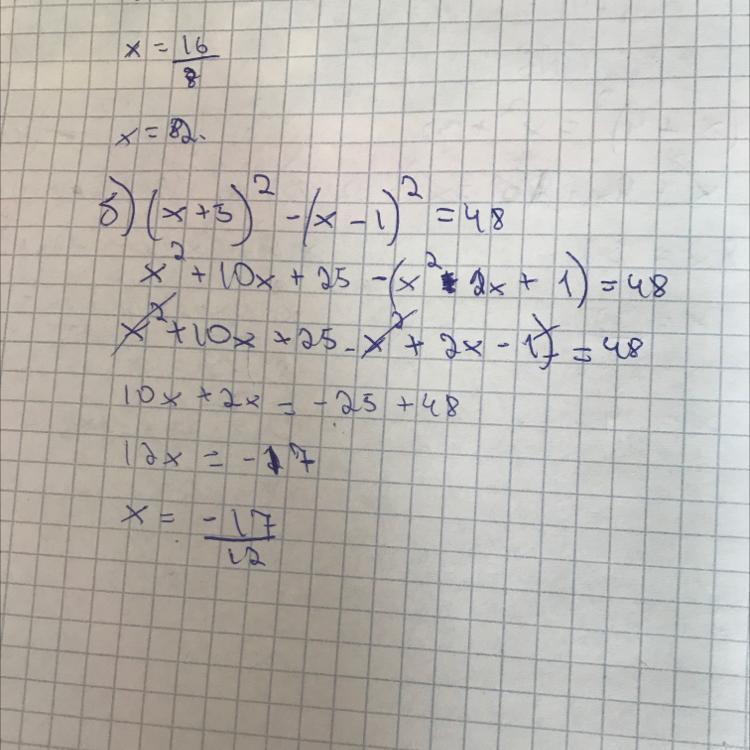 x = 16/8
x = 2.
б) (x + 5)² - (x - 1)² = 48
x² + 10x + 25 - (x² - 2x + 1) = 48
x² + 10x + 25 - x² + 2x - 1 = 48
10x + 2x = -25 + 48
12x = -17
x = -17/12